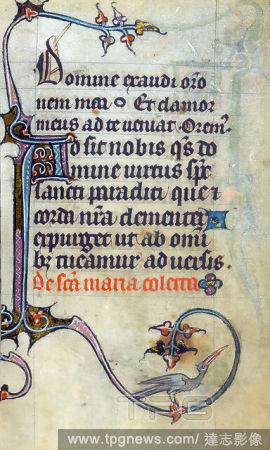 Domine exaudi orõ
nem mea Et clamor
meus ad te veniat Orem⁹
Ad sit nobis qs do
mine virtus spc
sancti pradicti que i
corda nr̃a clementer̃
expurget ut ab omi
bȝ tueamur adversis.
De scã maria colecta
TPG
www.tpgnews.com/ 達志影像